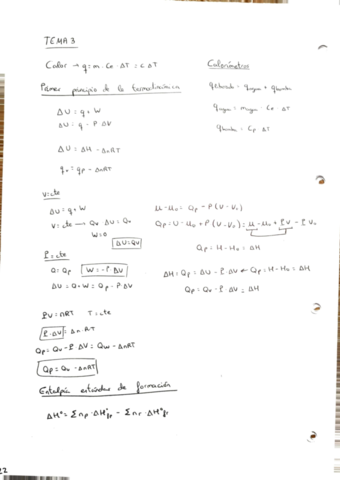 TEMA 3
Calor → q = m · Ce · ΔT = C ΔT
Calorímetro
Primer principio de la termodinámica
q liberado = q agua + q bomba
ΔU = q + W
q agua = m agua · Ce ΔT
ΔU = q - P ΔV
q bomba = Cp ΔT
ΔU = ΔH - ΔnRT
qv = qp - ΔnRT
V = cte
ΔU = q + W
V = cte → Qv ΔU = Qv
W = 0
ΔU = Qv
U - U₀ = Qp - P (V - V₀)
Qp = U - U₀ + P (V - V₀) = U - U₀ + PV - P V₀
Qp = H - H₀ = ΔH
P = cte
Q = Qp W = -P ΔV
ΔU = Q + W = Qp - P ΔV
ΔH = Qp = ΔU - P · ΔV ← Qp = H - H₀ = ΔH
Qp = Qv - P · ΔV = ΔH
PV = nRT T = cte
P · ΔV = Δn · RT
Qp = Qv - P ΔV = Qv - ΔnRT
Qp = Qv - ΔnRT
Entalpía estándar de formación
ΔH° = Σ np · ΔH°fp - Σ nr · ΔH°fr
22